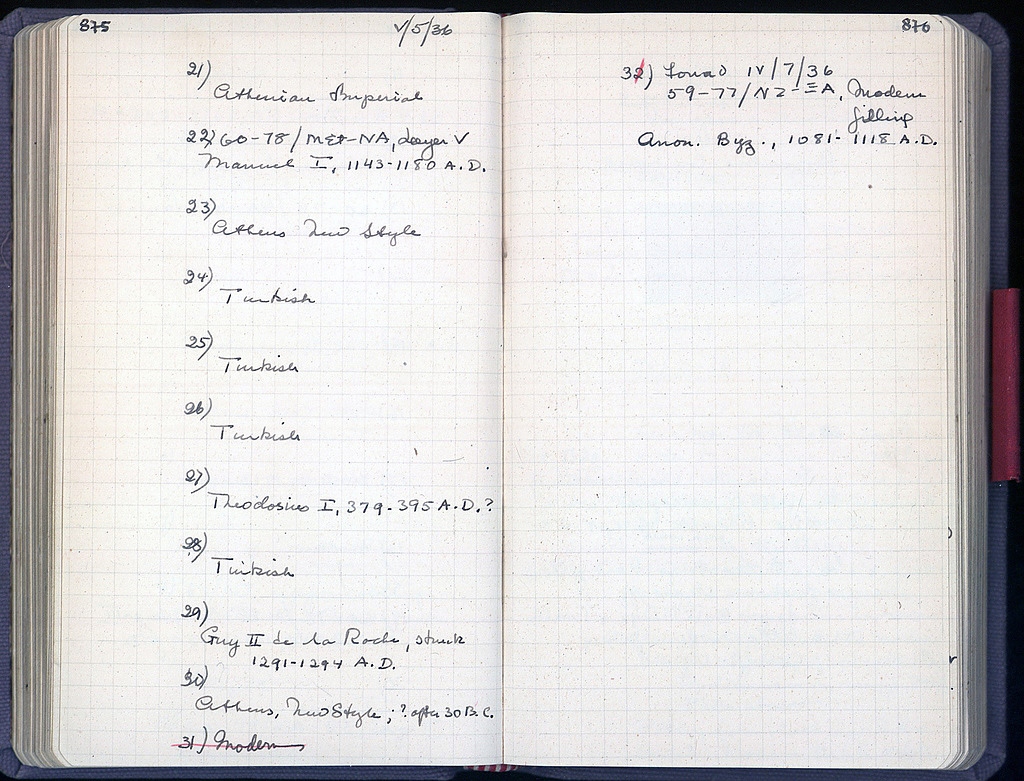 875
V/5/36
21)
Athenian Imperial
22) 60-78/ΜΕ+-ΝΑ, Layer V
Manuel I, 1143-1180 A.D.
23)
Athens New Style
24)
Turkish
25)
Turkish
26)
Turkish
27)
Theodosius I, 379-395 A.D.?
28)
Turkish
29)
Guy II de la Roche, struck
1291-1294 A.D.
30)
Athens, New Style, ? after 30 B.C.
31) Modern
876
32) Found IV/7/36
59-77/ΝΖ-ΞΑ, Modern
filling
Anon. Byz., 1081-1118 A.D.